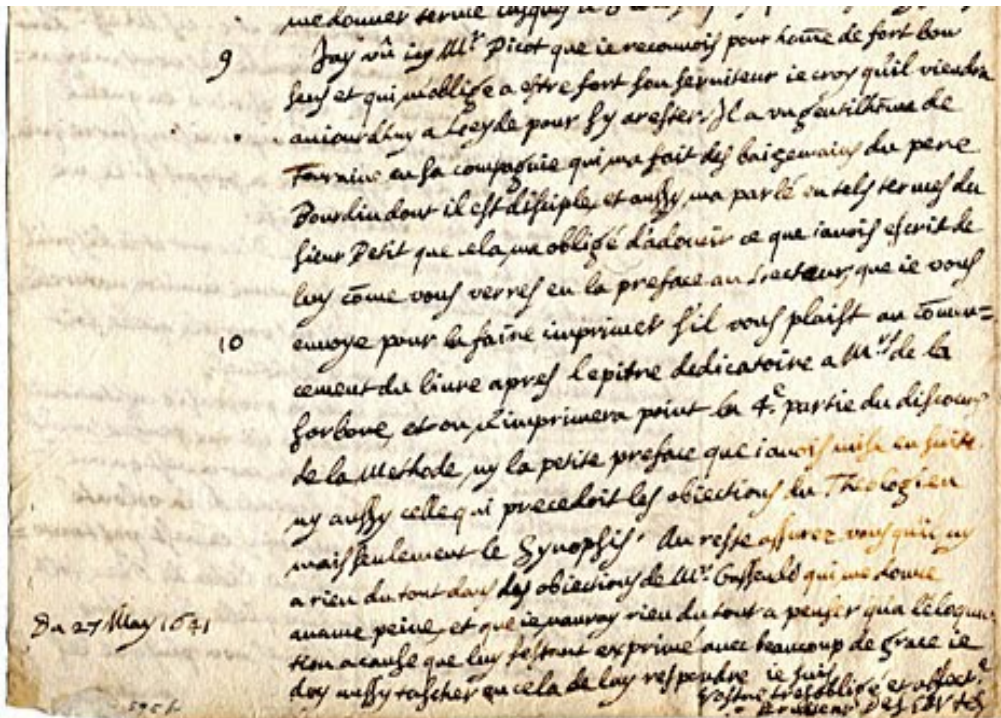 me donner terme jusques a
9
Jay vû icy Mr Picot que ie reconnois pour hoñe de fort bon
sens et qui m'oblige a estre fort son serviteur ie croy qu'il viendra
aujourdhuy a Leyde pour s'y arester. Il a un gentilhõme de
Touraine en sa compagnie qui m'a fait des baizemains du pere
Bourdin dont il est disciple, et aussy m'a parlé en tels termes du
sieur Petit que cela m'a obligé d'adoucir ce que iavois escrit de
luy cõme vous verres en la preface au Lecteur, que ie vous
10
envoye pour la faire imprimer s'il vous plaist au comen=
cement du livre apres l'epitre dedicatoire a Mrs de la
sorbone, et on n'imprimera point la 4e partie du discours
de la Methode, ny la petite preface que iavois mise en suite
ny aussy celle qui precedoit les obiections du Theologien
mais seulement le Synopsis. Au reste assurez vous qu'il ny
a rien du tout dans les obiections de Mr Gassendi qui me donne
aucune peine, et que ie nauray rien du tout a penser qu'a l'elocqu
Du 27 May 1641
tion a cause que luy s'estant exprimé avec beaucoup de grace ie
doy aussy tascher en cela de luy respondre ie suis
Vostre tresobligé et affect.é
serviteur Descartes